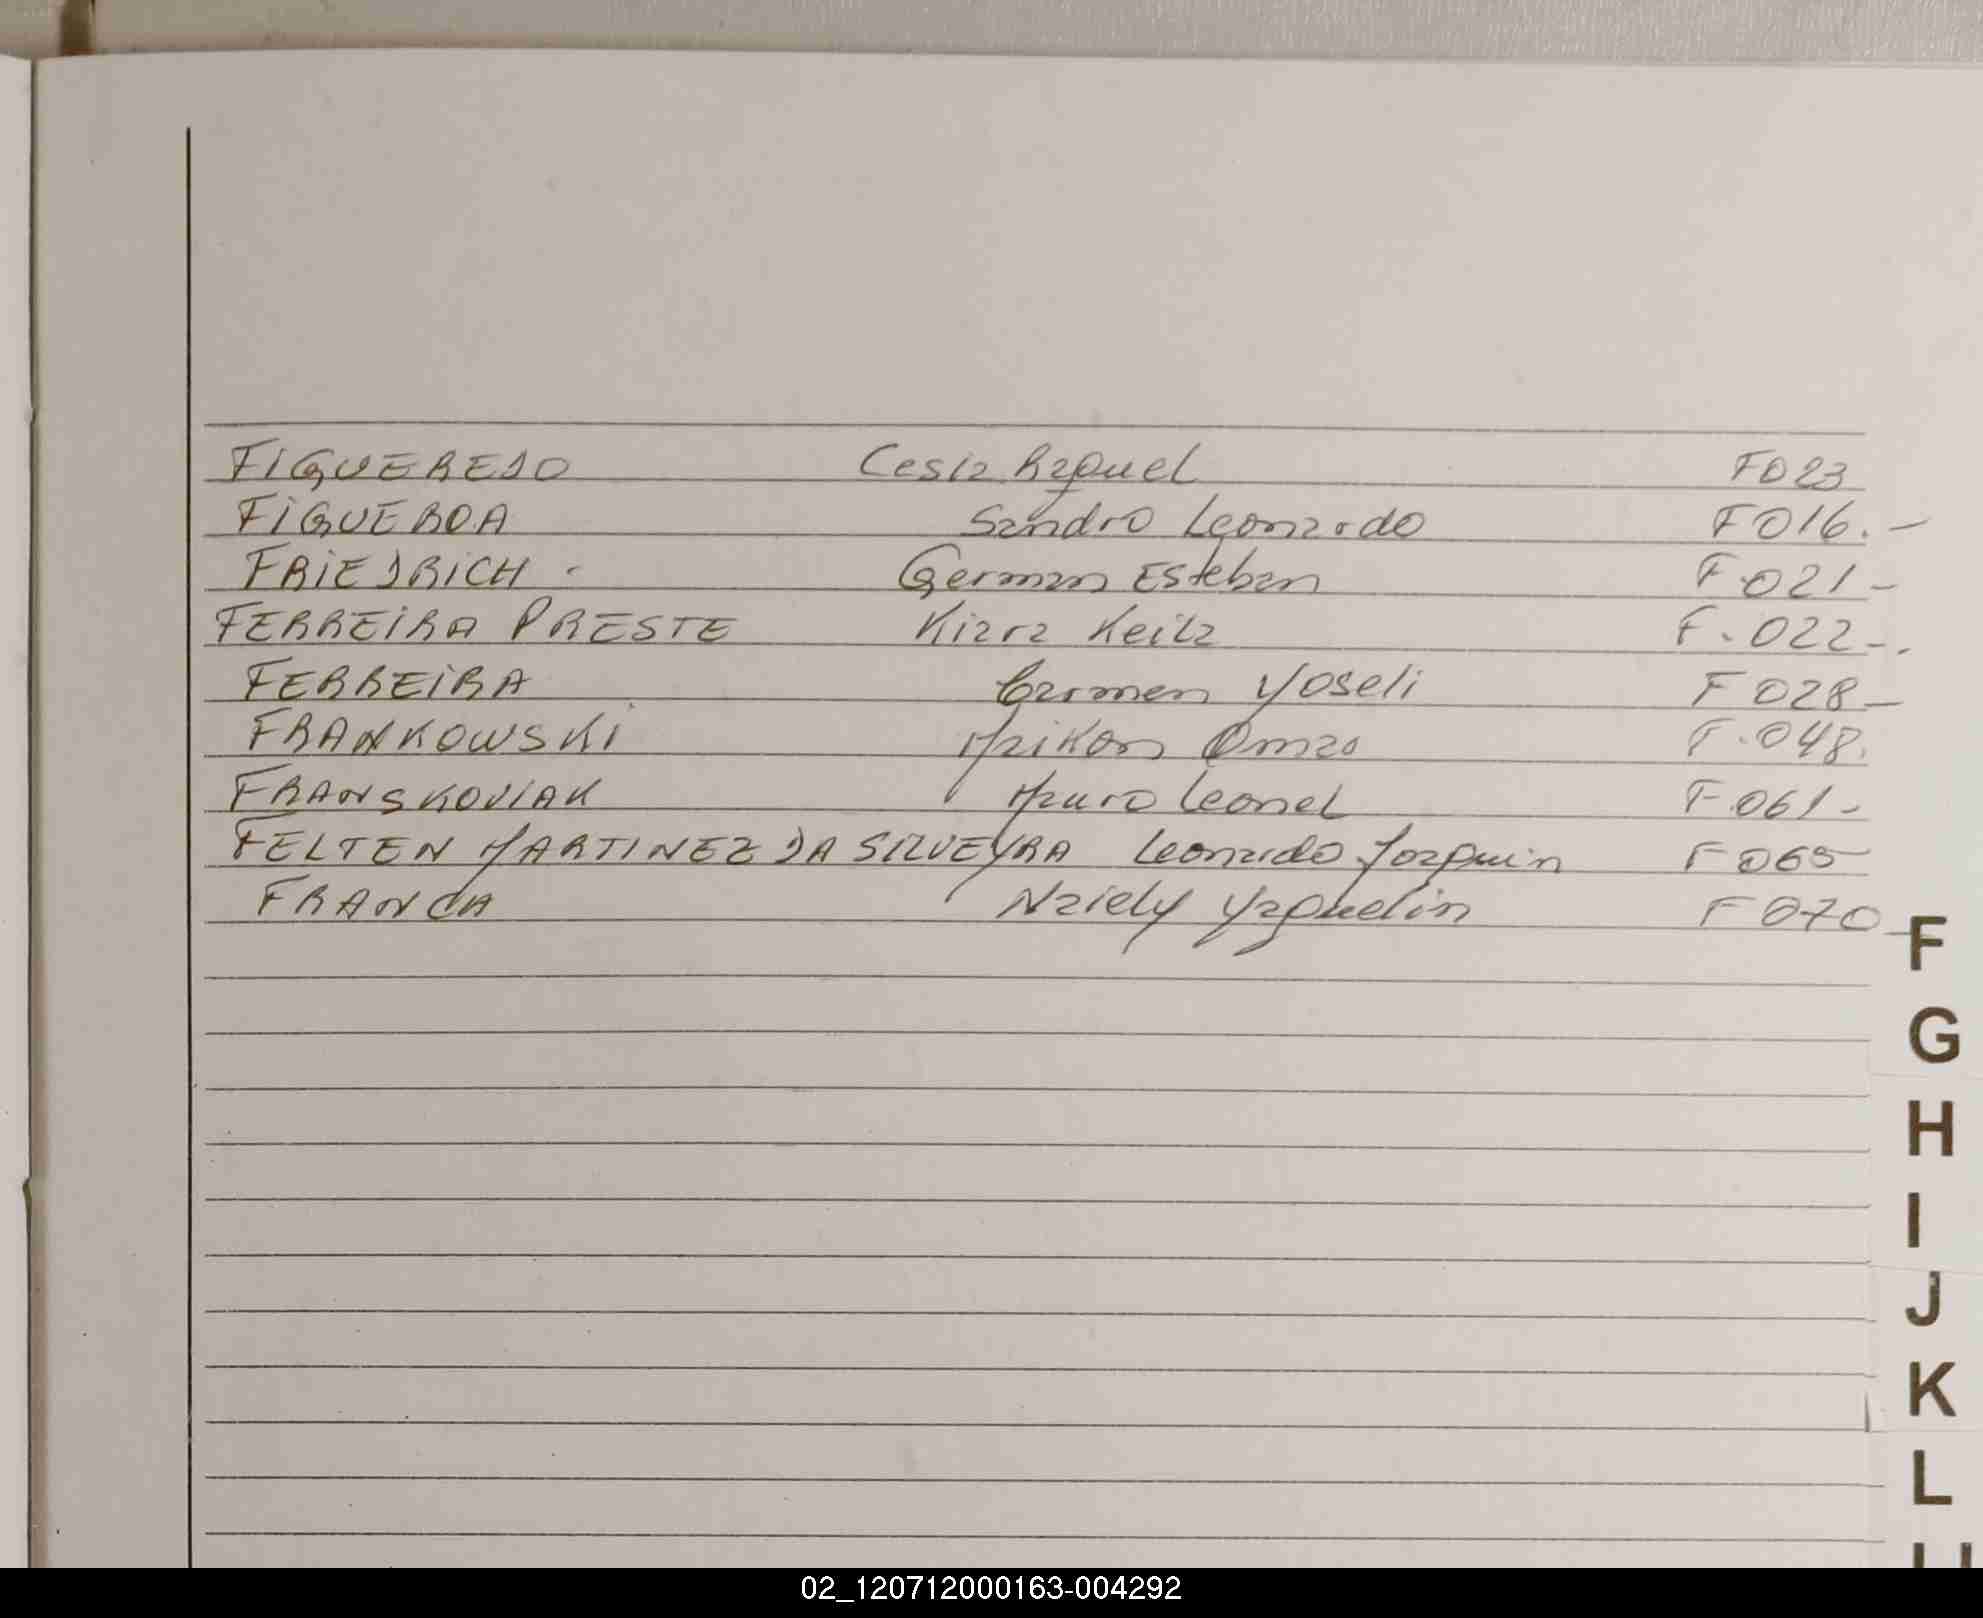 FIGUEREDO Cesia Raquel F023
FIGUEROA Sandro Leonardo F016.-
FRIEDRICH. German Esteban F.021-
FERREIRA PRESTE Kiara Keila F.022-.
FERREIRA Carmen Yoseli F028-
FRANKOWSKI Maikon Omar F.048.
FRANSKOVIAK Mauro Leonel F.061-
FELTEN MARTINEZ DA SILVEYRA Leonardo Joaquin F065
FRANCA Naiely Yaquelin F070-
F
G
H
I
J
K
L
02_120712000163-004292